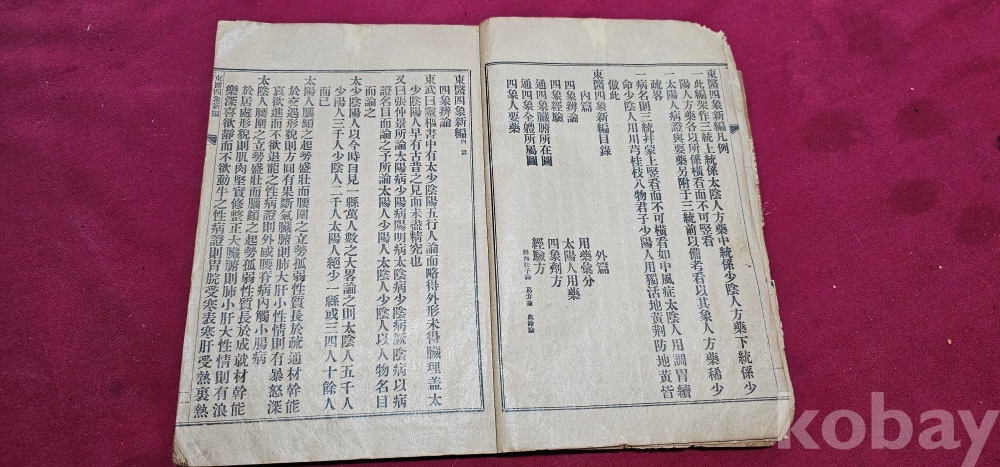 東醫四象新編凡例
一此編架作三統上統係太陰人方藥中統係少陰人方藥下統係少
陽人方藥各以所係橫看而不可竪看
一太陽人病證與要藥另附于三統前以備若看以其象人方藥稀少
疏畧
一病名則三統幷蒙上竪看而不可橫看如中風症太陰人用調胃續
命少陰人用川芎桂枝八物君子少陽人用獨活地黃荆防地黃皆
倣此
東醫四象新編目錄
內篇
四象辨論
四象經驗
通四象臟腑所在圖
通四象全體所屬圖
四象人要藥
外篇
用藥彙分
太陽人用藥
四象劑方
經驗方
東醫四象新編
四象辨論
東武曰靈樞書中有太少陰陽五行人論而略得外形未得臟理盖太
少陰陽人早有古昔之見而未盡精究也
又曰張仲景所論太陽病少陽病陽明病太陰病少陰病厥陰病以病
證名目而論之予所論太陽人少陽人太陰人少陰人以人物名目
而論之
太少陰陽人以今時目見一縣萬人數之大畧論之則太陰人五千人
少陽人三千人少陰人二千人太陽人絕少一縣或三四人十餘人
而已
太陽人腦䫇之起勢盛壯而腰圍之立勢孤弱性質長於疏通材幹能
於交遇形貌則方圓有果斷氣臟腑則肺大肝小性情則有暴怒深
哀欲進而不欲退龍之性病證則外感腰脊病內觸小腸病
太陰人腰圍之立勢盛壯而腦䫇之起勢孤弱性質長於成就材幹能
於居處形貌則肌肉堅實修整正大臟腑則肺小肝大性情則有浪
樂深喜欲靜而不欲動牛之性病證則胃脘受寒表寒肝受熱裏熱
東醫四象新編
kobay